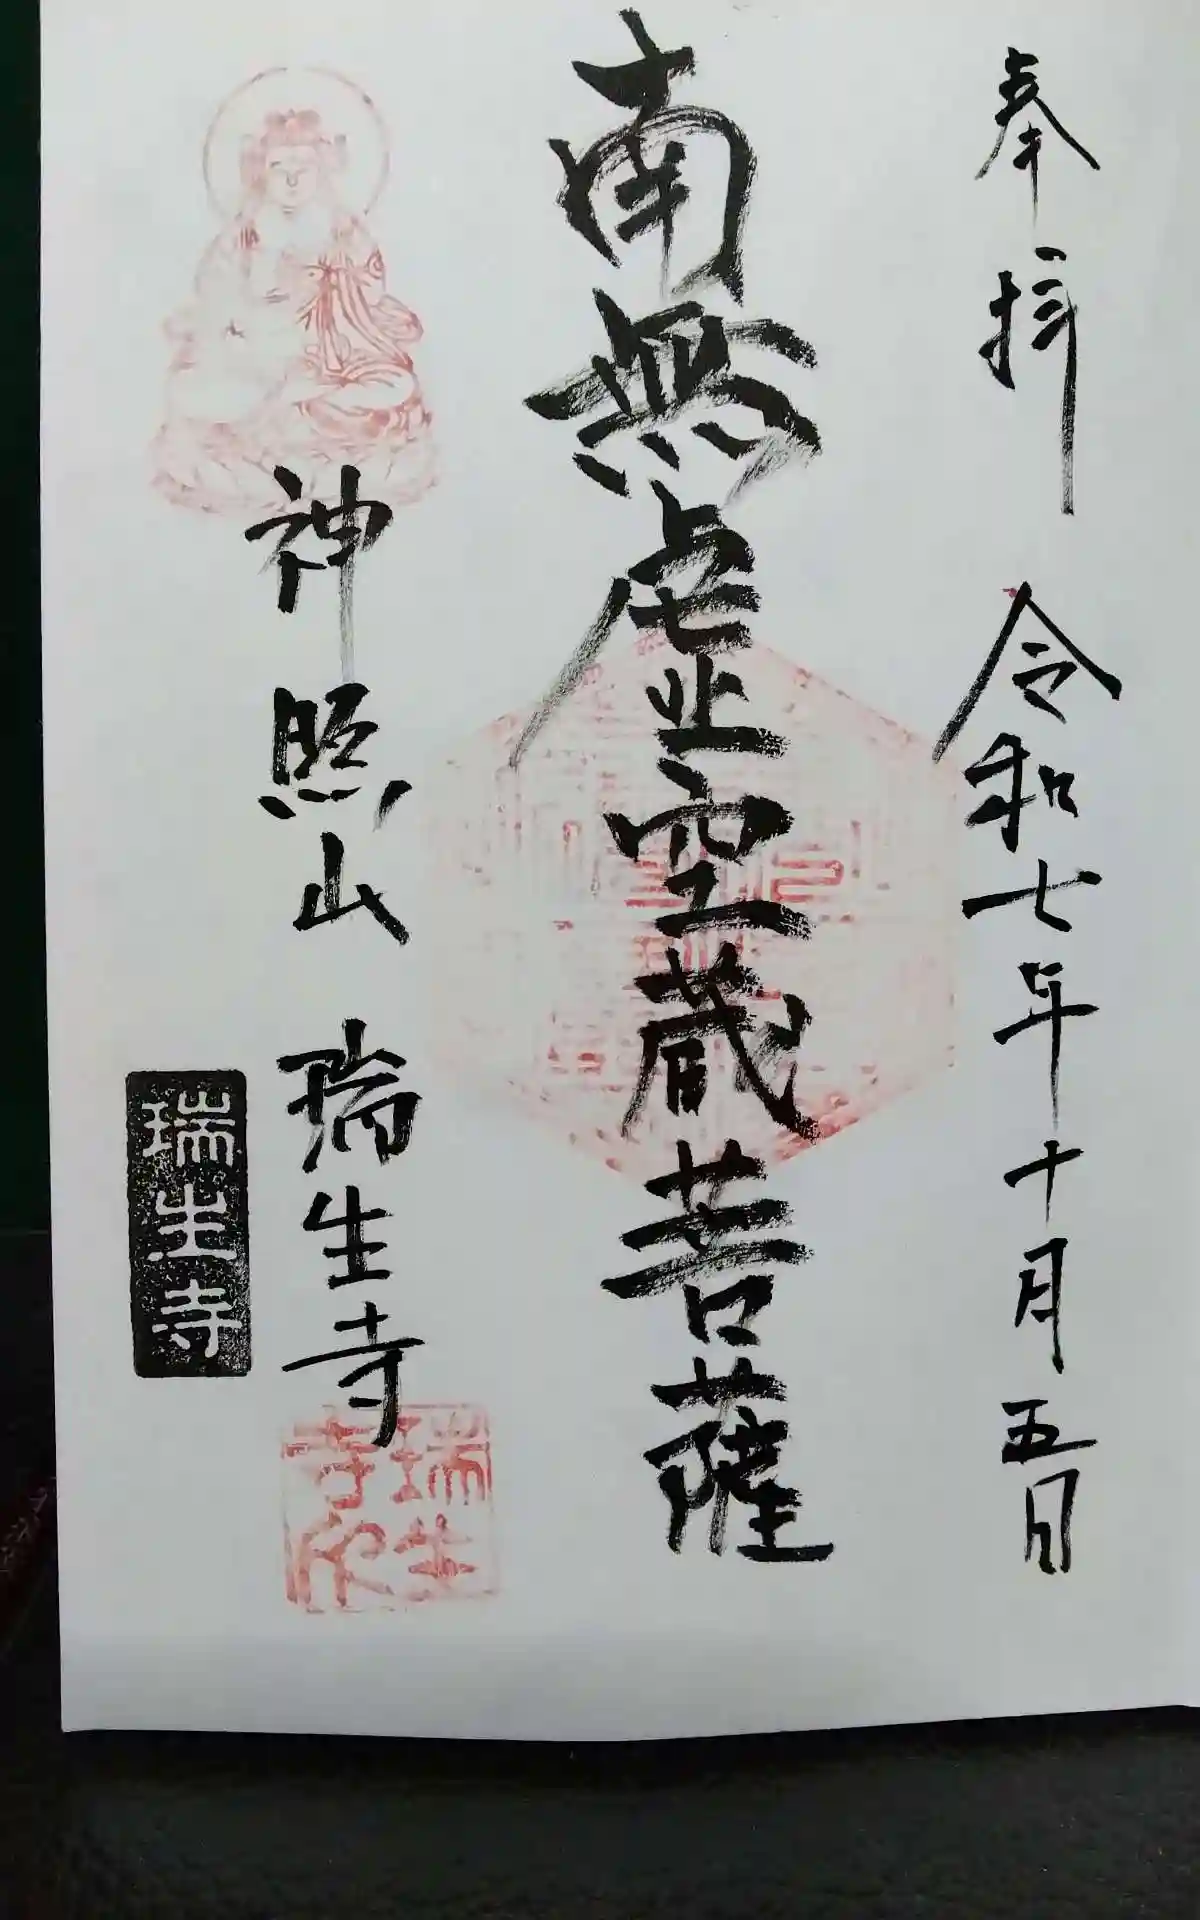 奉拝 令和七年十月五日
南無虚空蔵菩薩
神照山 瑞生寺
瑞生寺
瑞生
寺印